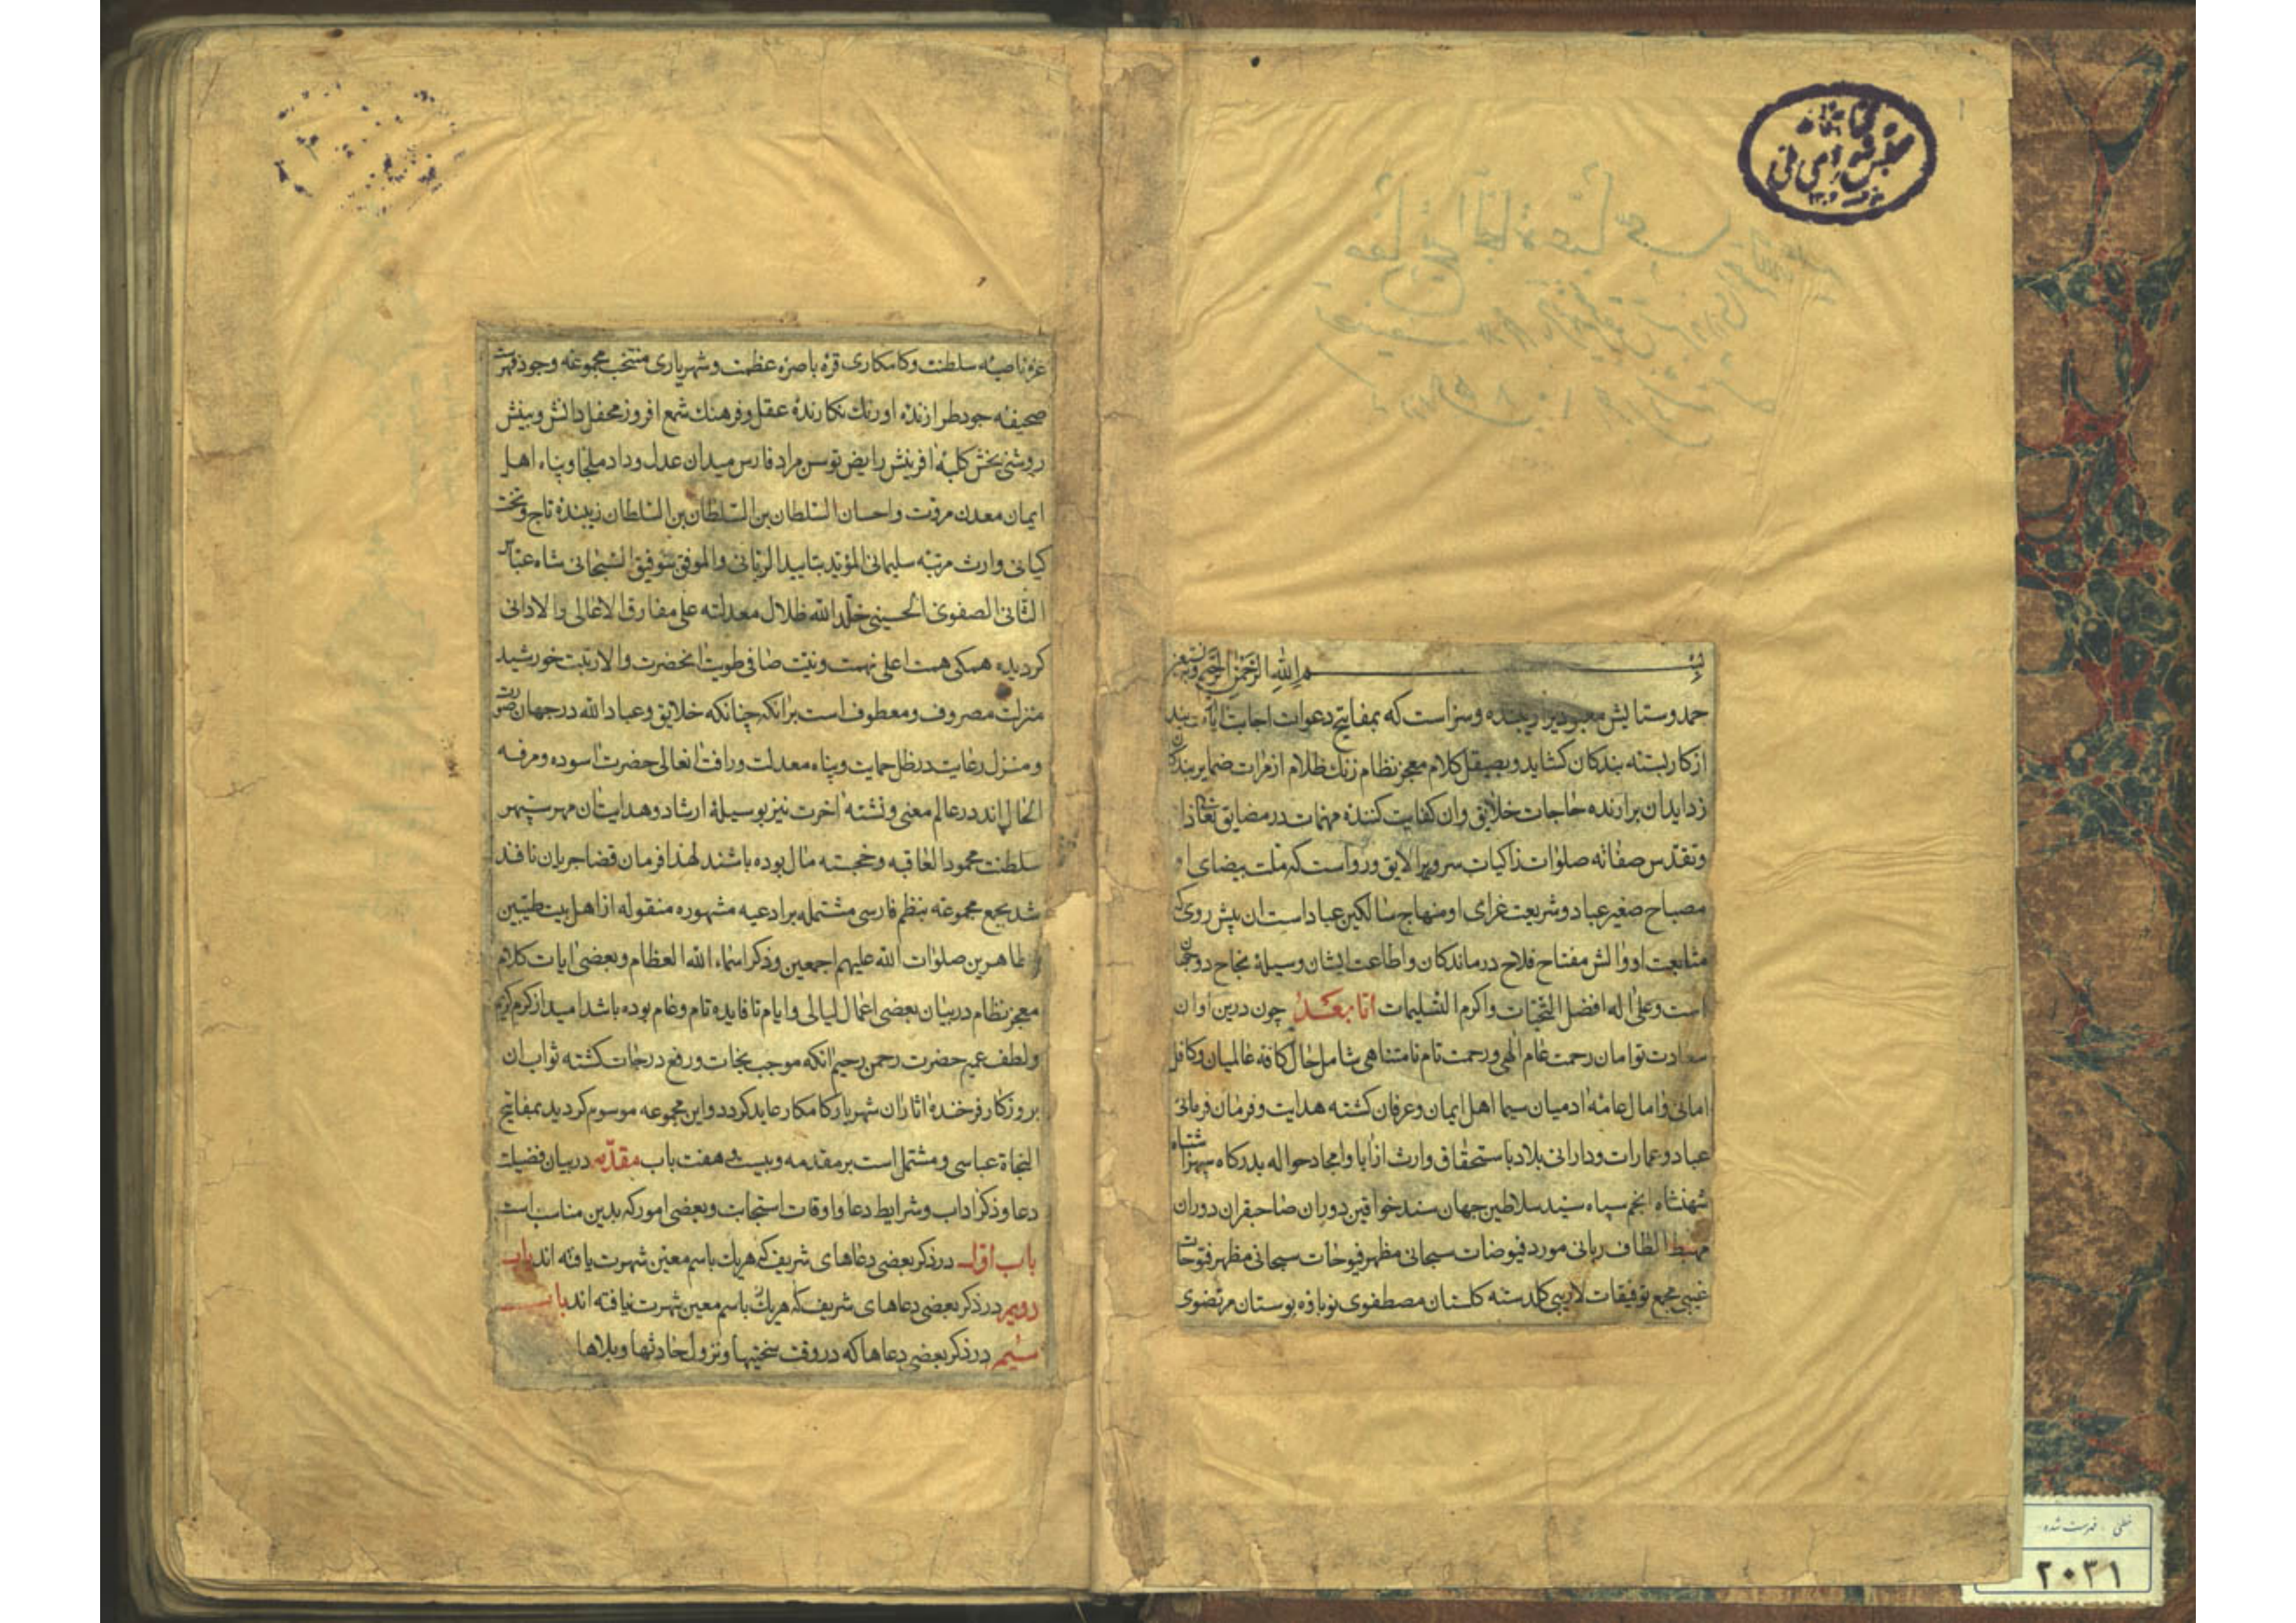 کتابخانه
مجلس شورای ملی
بسم الله الرحمن الرحیم وبه نستعین
حمد وستایش معبودیرا زیبنده وسزاست که بمفاتیح دعوات اجابت
از کار بسته بندکان کشاید وبصیقل کلام معجز نظام زنك ظلام از مرات ضمایر بندکان
زداید ان برارنده حاجات خلایق وان کفایت کننده مهمات در مضایق تعالی
وتقدس صفاته صلوات زاکیات سروریرا لایق ورواست که ملت بیضای او
مصباح صغیر عباد وشریعت غرای او منهاج سالکین عباد است ان پیش روی که
متابعت او والش مفتاح فلاح درماندکان واطاعت ایشان وسیلهٔ نجاح دوجهان
است وعلی اله افضل التحیات واکرم التسلیمات اما بعد چون درین اوان
سعادت توامان رحمت عام الهی ورحمت تام نامتناهی شامل حال کافه عالمیان وکافل
امانی وامال عامهٔ ادمیان سیما اهل ایمان وعرفان کشته هدایت وفرمان فرمائی
عباد وعمارات ودارائی بلاد باستحقاق وارث از ابا وامجاد حواله بدرکاه سپهر اشتباه
شهنشاه انجم سپاه سید سلاطین جهان سند خواقین دوران صاحبقران دوران
مهبط الطاف ربانی مورد فیوضات سبحانی مظهر فیوحات سبحانی مظهر فتوحات
غیبی مجمع توفیقات لاریبی کلدسته کلستان مصطفوی نوباوه بوستان مرتضوی
غره ناصیه سلطنت وکامکاری قره باصره عظمت وشهریاری منتخب مجموعه وجود فهرست
صحیفه جود طرازنده اورنك نکارندهٔ عقل وفرهنك شمع افروز محفل دانش وبینش
روشنی بخش کلبهٔ افرینش رایض توسن مراد فارس میدان عدل وداد ملجا وپناه اهل
ایمان معدن مروت واحسان السلطان بن السلطان بن السلطان زیبندهٔ تاج وتخت
کیانی وارث مرتبه سلیمانی المؤید بتایید الربانی والموفق بتوفیق السبحانی شاه عباس
الثانی الصفوی الحسینی خلد الله ظلال معدلته علی مفارق الاعالی والادانی
کردیده همکی همت اعلی نهمت ونیت صافی طویت انحضرت والارتبت خورشید
منزلت مصروف ومعطوف است برانکه چنانکه خلایق وعباد الله در جهان صورت
ومنزل رعایت در ظل حمایت وپناه معدلت ورافت انعالی حضرت اسوده ومرفه
الحال اند در عالم معنی ونشئه اخرت نیز بوسیلهٔ ارشاد وهدایت ان مهر سپهر
سلطنت محمود العاقبه وخجسته مال بوده باشند لهذا فرمان قضا جریان نافذ
شد بجمع مجموعه بنظم فارسی مشتمله بر ادعیه مشهوره منقوله از اهل بیت طیبین
طاهرین صلوات الله علیهم اجمعین وذکر اسماء الله العظام وبعضی ایات کلام
معجز نظام در بیان بعضی اعمال لیالی وایام تا فایده تام وعام بوده باشد امید از کرم کریم
ولطف عمیم حضرت رحمن رحیم انکه موجب نجات ورفع درجات کشته ثواب ان
بروزکار فرخنده اثار ان شهریار کامکار عاید کردد واین مجموعه موسوم کردید بمفاتیح
النجاة عباسی ومشتمل است بر مقدمه وبیست وهفت باب مقدمه در بیان فضیلت
دعا وذکر اداب وشرایط دعا واوقات استجابت وبعضی امور که بدین مناسب است
باب اول در ذکر بعضی دعاهای شریف که هریك باسم معین شهرت یافته اند باب
دویم در ذکر بعضی دعاهای شریف که هریك باسم معین شهرت نیافته اند باب
سیم در ذکر بعضی دعاها که در وقت سختیها ونزول حادثها وبلاها
خطی . فهرست شده
۲۰۳۱